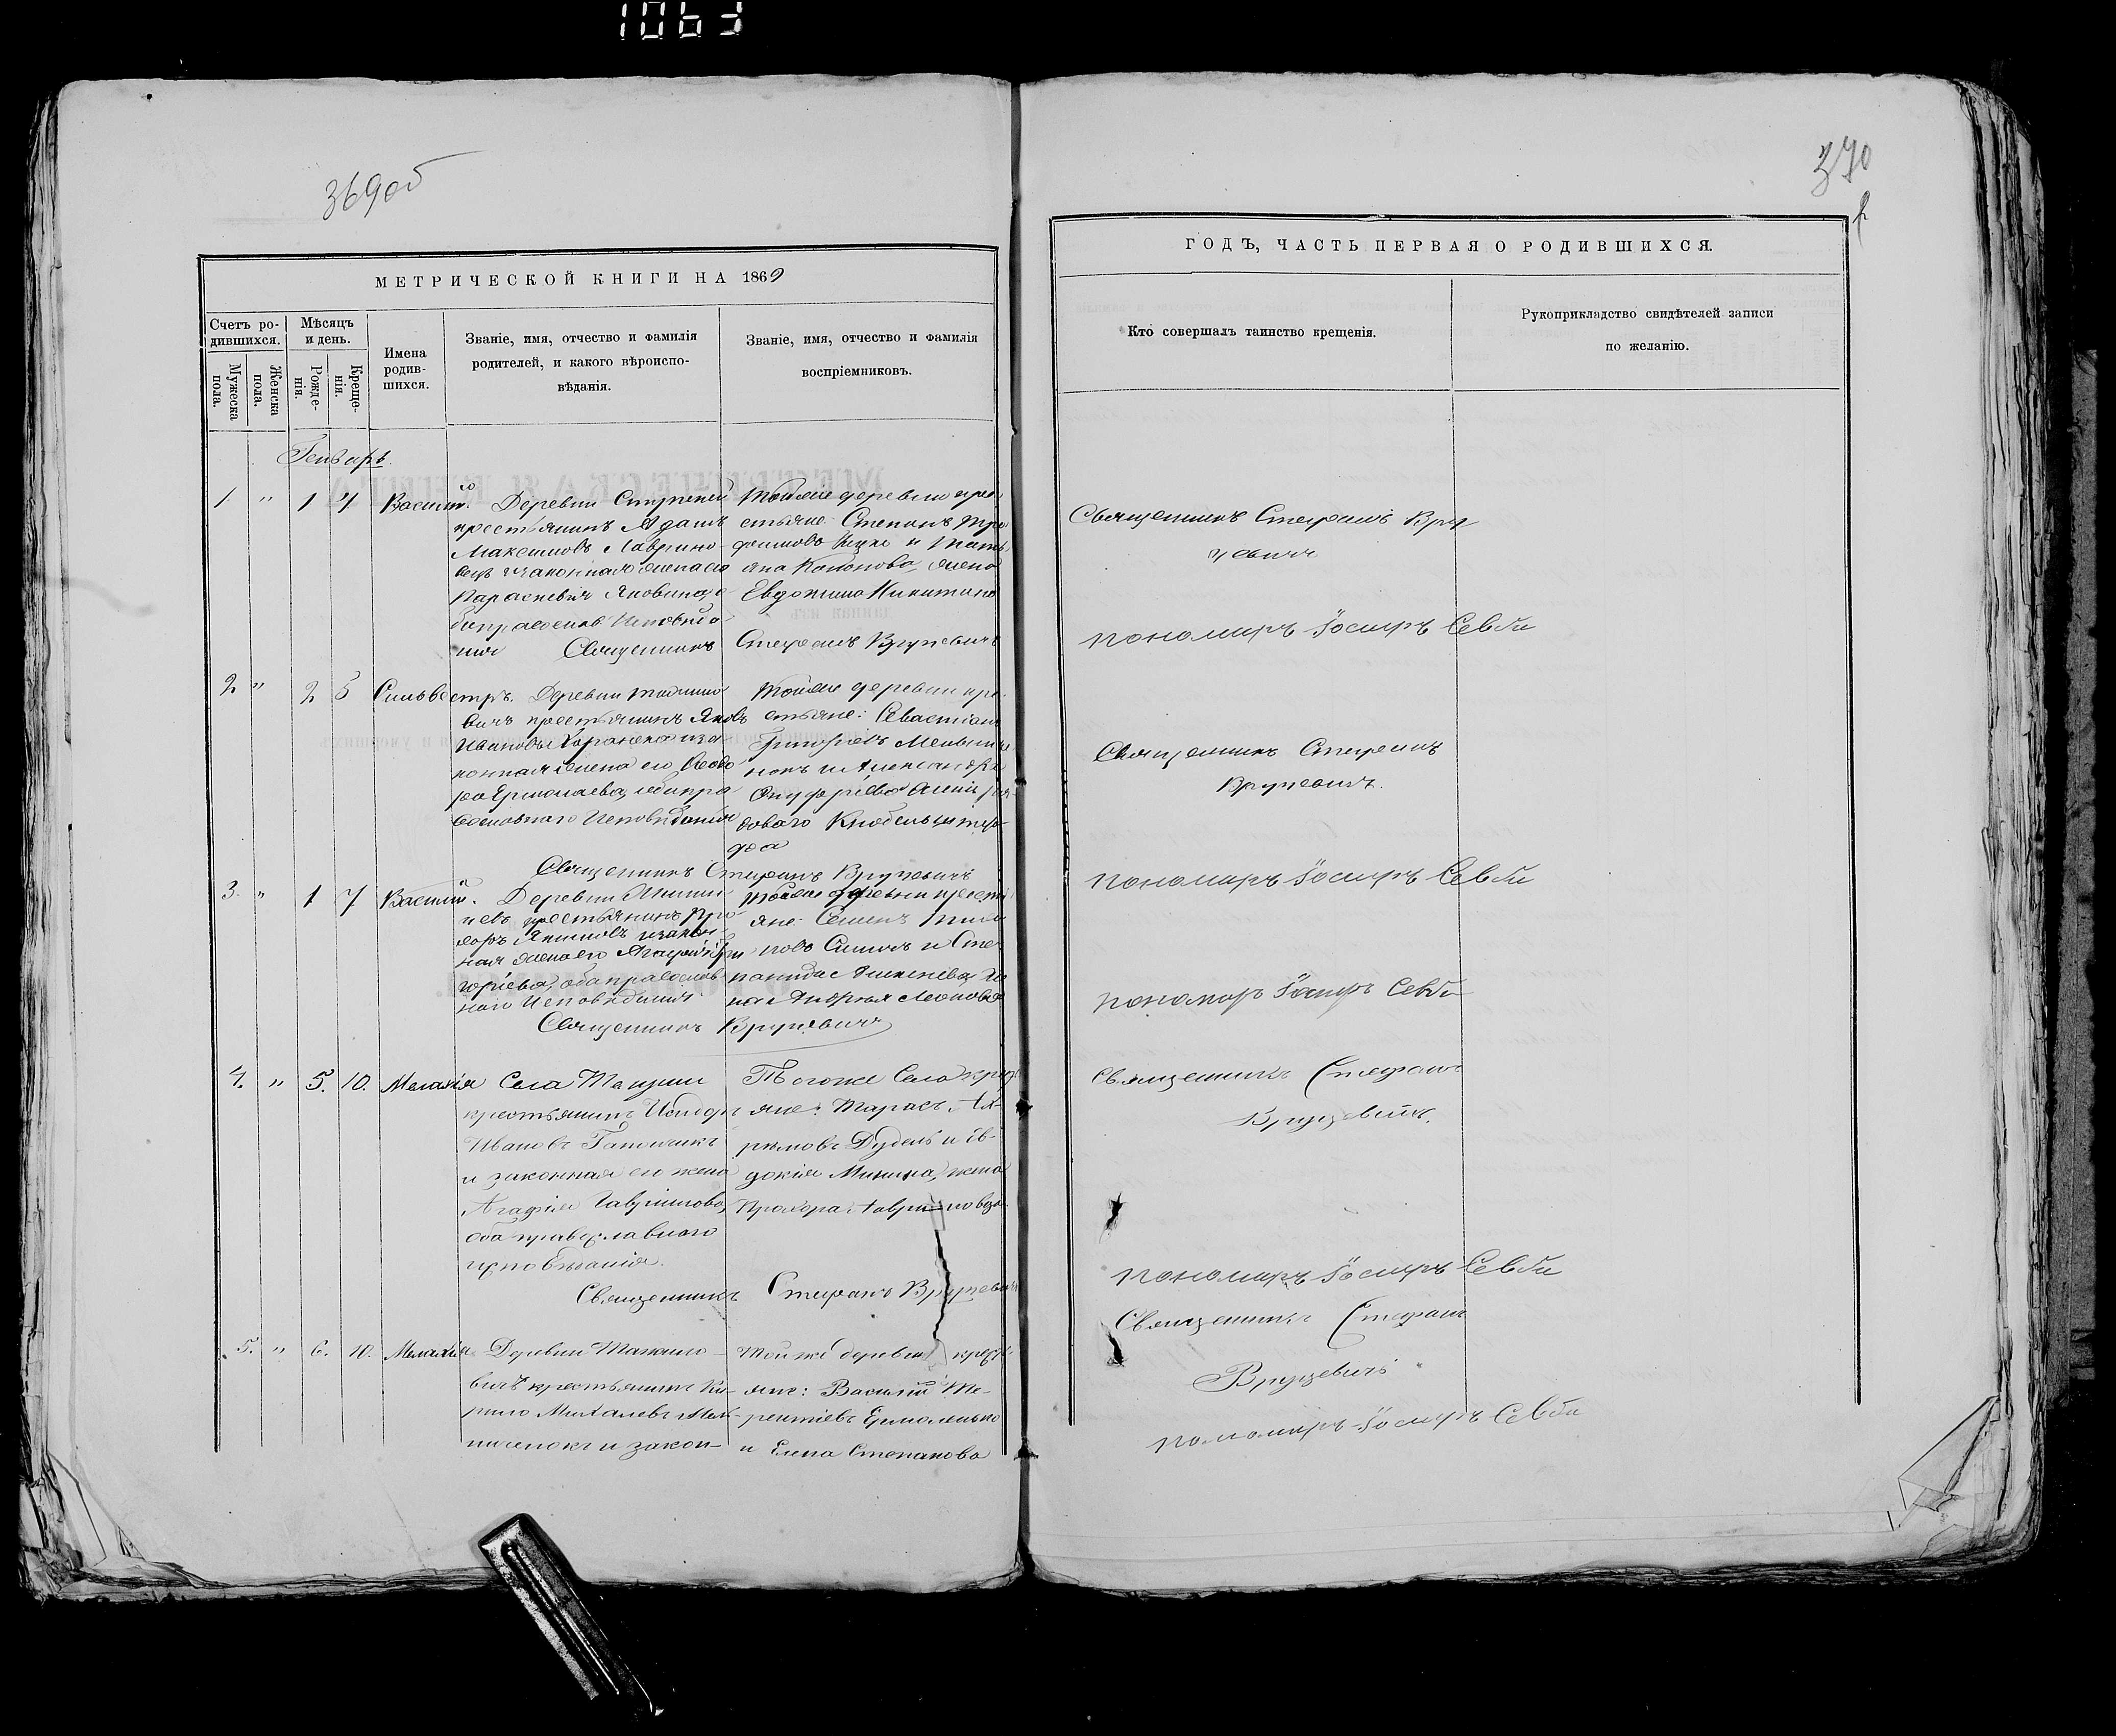 1063
369 об
370
МЕТРИЧЕСКОЙ КНИГИ НА 1869
ГОДЪ, ЧАСТЬ ПЕРВАЯ О РОДИВШИХСЯ.
Счетъ ро-
дившихся.
Мужеска
пола.
Женска
пола.
Мѣсяцъ
и день.
Рожде-
нія.
Креще-
нія.
Имена
родив-
шихся.
Званіе, имя, отчество и фамилія
родителей, и какого вѣроиспо-
вѣданія.
Званіе, имя, отчество и фамилія
воспріемниковъ.
Кто совершалъ таинство крещенія.
Рукоприкладство свидѣтелей записи
по желанію.
Генварь.
1 " 1 4 Василій.
Деревни
крестьянинъ Адамъ
Максимовъ Лаврино-
вецъ законная жена его
Параскевія Яковлева,
православ Исповѣда
нія Священникъ
Тойже деревни кре
стьяне Степанъ Тро
фимовъ и Тать
яна Кононова, жена
Евдокима Никитина
Стефанъ Вруцевичъ
Священникъ Стефанъ Вру
цевичъ
пономаръ Іосифъ Севби
2 " 2 5 Сильвестръ.
Деревни
вичъ крестьянинъ Яковъ
Ивановъ иза
конная жена его Ѳеодо
ра Ермолаева, оба пра
вославнаго Исповѣданія
Тойже деревни кре
стьяне: Севастіанъ
Григорьевъ
и Александра
жена
доваго
фа
Священникъ Стефанъ Вруцевичъ
Священникъ Стефанъ
Вруцевичъ.
пономаръ Іосифъ Севби
3. " 1 7 Василій.
Деревни
крестьянинъ Про
хоръ Якимовъ изакон
ная жена его Агафія Гри
горіева, оба православ
наго Исповѣданія
Тойже деревни крестъ
яне Семенъ
и Сте
панида Алексѣева же
на Андрея Леонова
Священникъ Вруцевичъ
пономаръ Іосифъ Севби
4. " 5. 10. Меланія
Села
крестьянинъ
Ивановъ Гапончикъ
и законная его жена
Агафія Гавріилова,
оба православнаго
исповѣданія.
Тогоже Села крест
яне: Тарасъ Ах-
римовъ Дудель и Ев-
докія Минина, жена
Прохора Лавриновца.
Священникъ Стефанъ Вруцевичъ
Священникъ Стефанъ
Вруцевичъ.
пономаръ Іосифъ Севби
5. " 6. 10. Меланія
Деревни
вичъ крестьянинъ Ки-
рило Михалевъ Мель-
ниченокъ и закон-
Той же деревни крест-
яне: Василій Те-
рентіевъ Ермоленко
и Елена Степанова
Священникъ Стефанъ
Вруцевичъ
пономаръ Іосифъ Севби